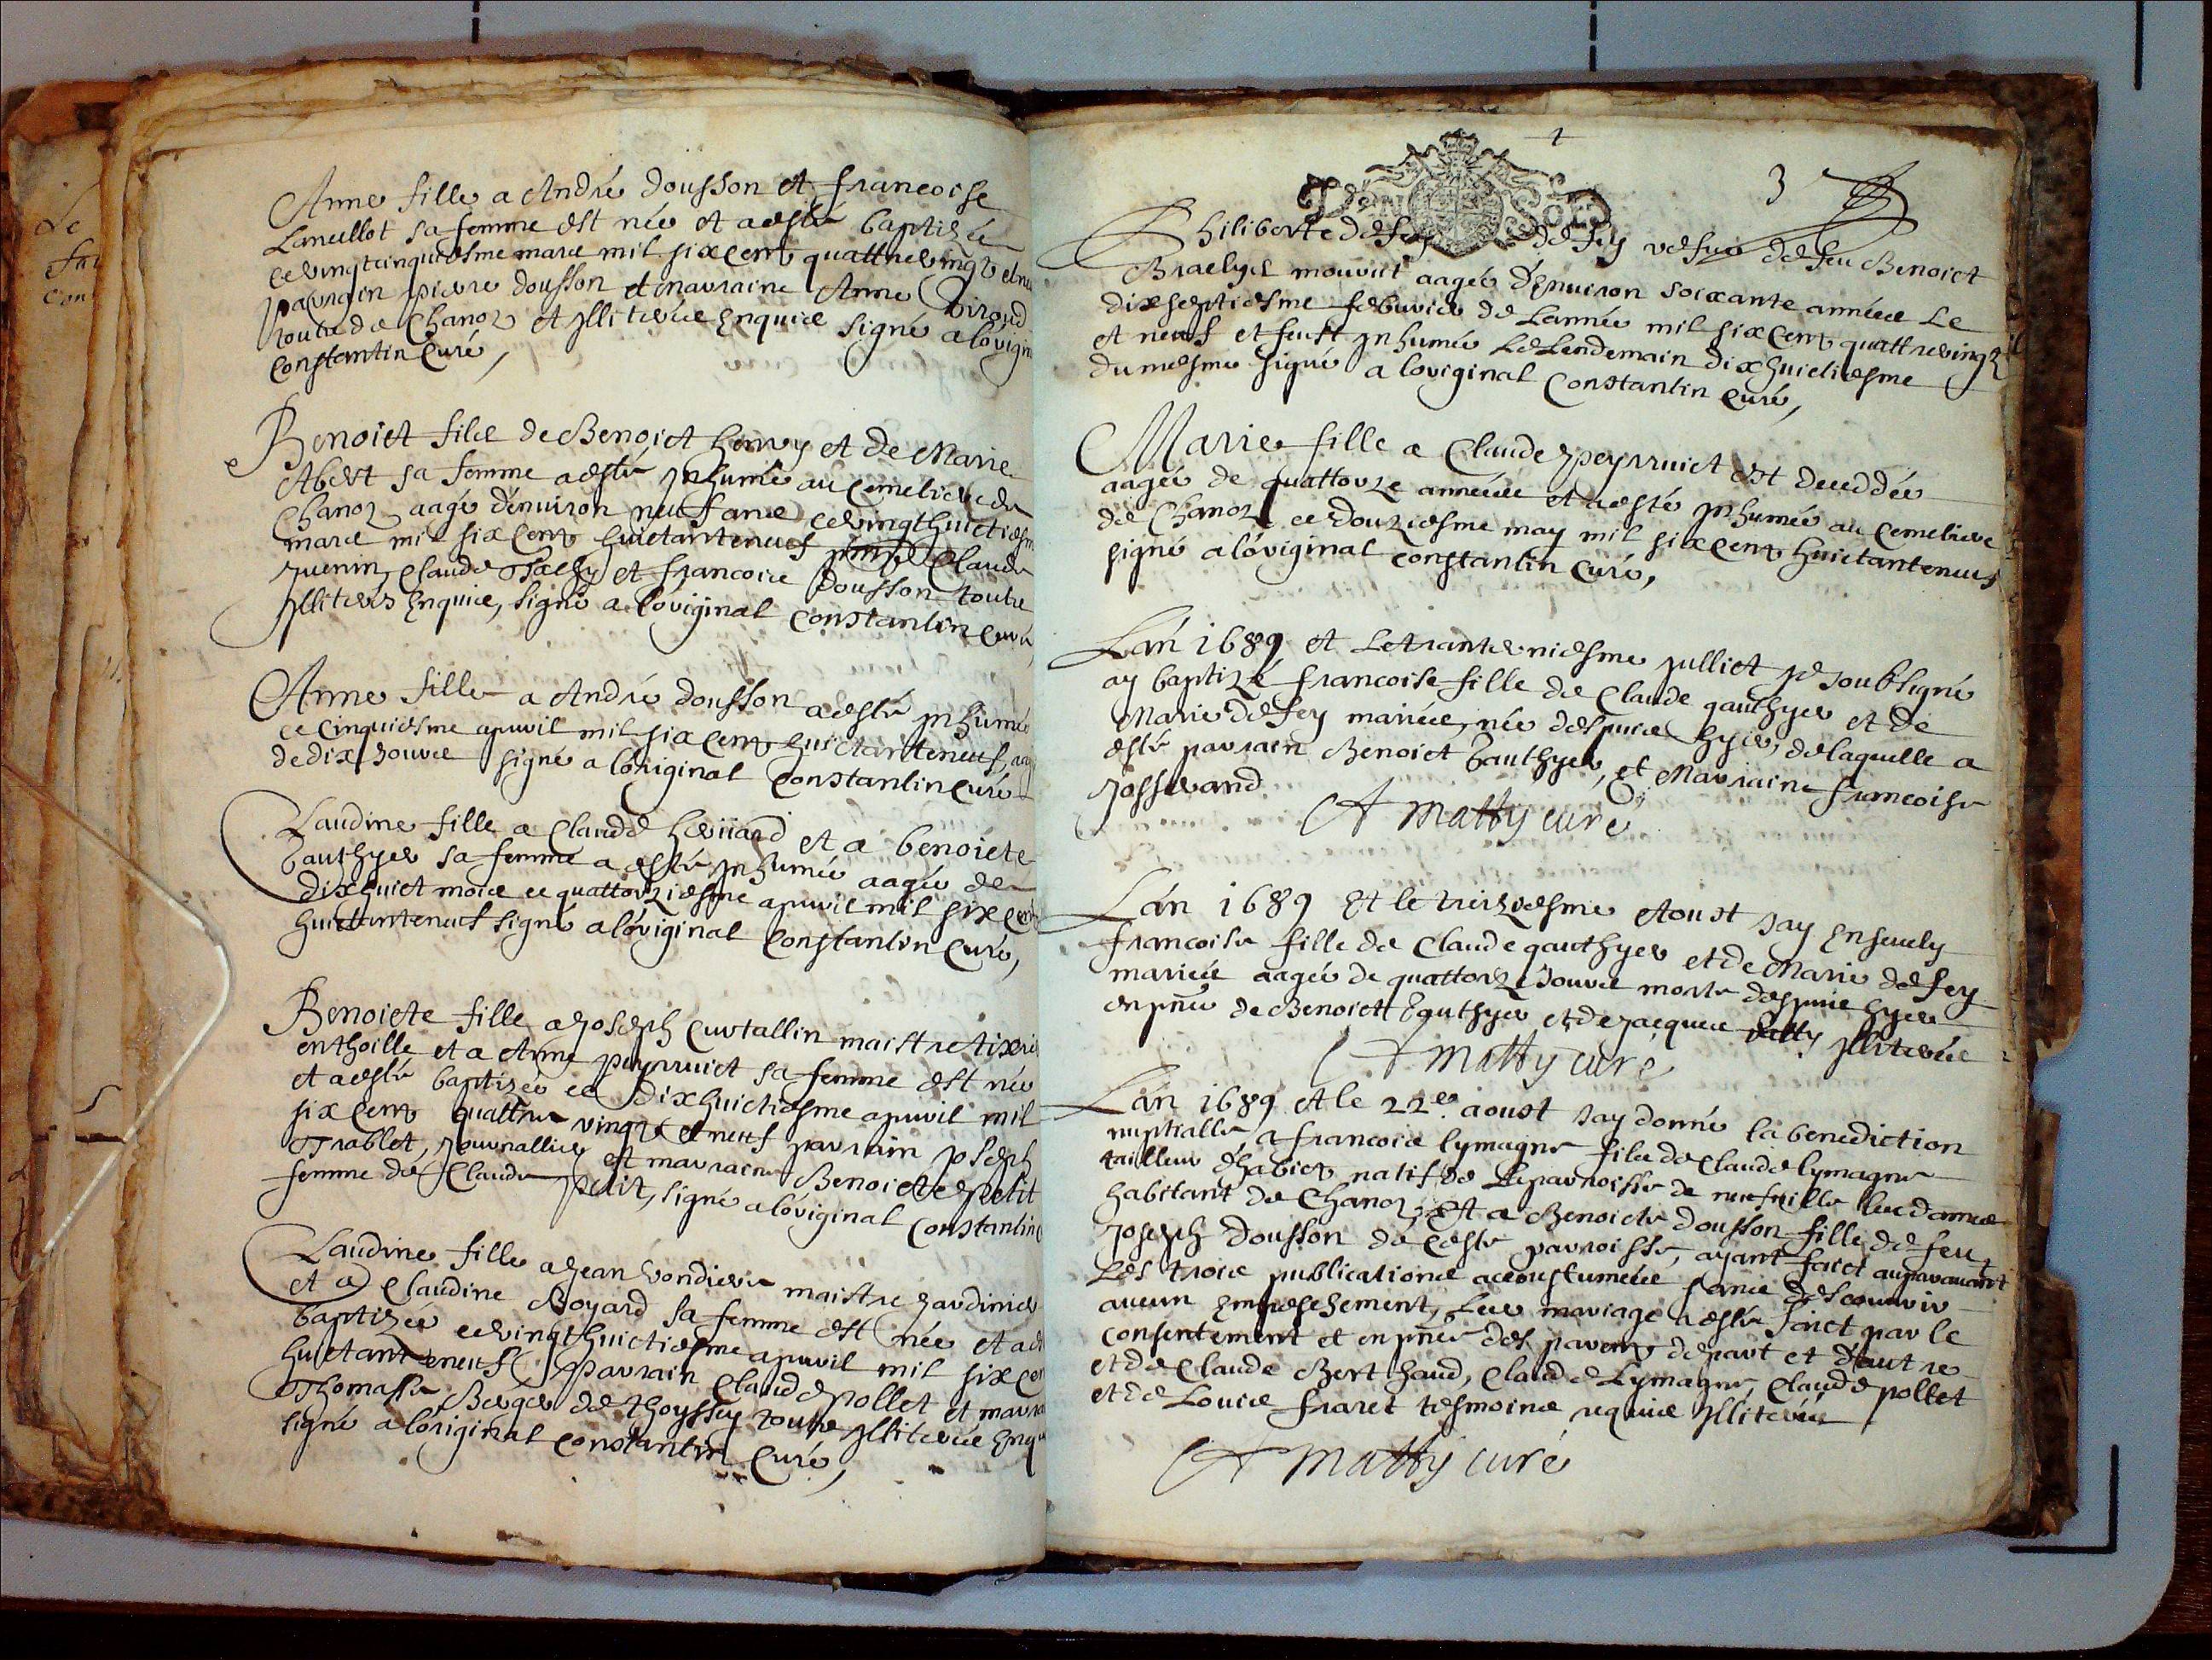 Anne fille a André dousson et francoise
Lancellot sa femme est née et a esté baptisée
ce vingtcinquiesme mars mil six cent quattrevingt et neu
parrain pierre dousson et marraine Anne Viroud
touts de Chanoz et Illiterés Enquis signé a lorigin
Constantin Curé,
Benoict fils de Benoict hervy et de Marie
Abert sa femme a esté Inhumé au Cemetiere de
Chanoz aagé d'enuiron neuf ans ce vingthuictiesm
mars mil six cent huictanteneuf Claude
Juenin, Claude et francois Dousson touts
Illiterés Enquis, signé a loriginal Constantin Curé
Anne fille a André dousson a esté Inhumée
ce Cinquiesme apuril mil six cent huictanteneuf, aag
de dix Jours signé a loriginal Constantin Curé
Claudine fille a Claude et a benoicte
Gauthyer sa femme a esté Inhumée aagée de
dixhuict mois ce quattorziesme apuril mil six cent
huictanteneuf signé a loriginal Constantin Curé,
Benoicte fille a Joseph Curtallin maistre tixie
en thoille et a Anne peyrruict sa femme est née
et a esté baptisée ce dixhuictiesme apuril mil
six cent quattre vingt et neuf parrain Joseph
Trablet, Journallier et marraine Benoicte petit
femme de Claude petit, signé a loriginal Constantin
Claudine fille a Jean Vondiere maistre Jardinier
et a Claudine Boyard sa femme est née et a es
baptisée ce vingthuictiesme apuril mil six cen
huictanteneuf parrain Claude pollet et marra
Thomasse Berger de Thoyssey touts Illiterés Enqu
signé a loriginal Constantin Curé,
3
DEN SOLD
Philiberte defey defey vefue de feu Benoict
Braelyer mourut aagée d'enuiron soixante années Le
dixseptiesme feburier de Lannée mil six cent quattrevingt
et neuf et feust Inhumée Le Lendemain dixhuictiesme
du mesme signé a loriginal Constantin Curé,
Marie fille a Claude peyrruict est deceddée
aagée de quattorze années et a esté Inhumée au Cemetiere
de Chanoz ce douziesme may mil six cent huictanteneuf
signé a loriginal Constantin Curé,
Lan 1689 et Le tranteuniesme Julliet Je soubsigné
ay baptizé francoise fille de Claude gauthyer et de
Marie defey mariés, née despuis hyer, de laquelle a
esté parrain Benoict Gauthyer, et Marraine francoise
Josserand.
A Matty curé
Lan 1689 Et le treiziesme Aoust Jay Enseuely
francoise fille de Claude gauthyer et de Marie defey
mariés aagée de quattorze Jours morte despuis hyer
en pnce de Benoict Gauthyer et de Jacques Illiterés
A Matty curé
Lan 1689 et le 22e. aoust Jay donné la benediction
nuptialle, a francois lymagne fils de Claude lymagne
tailleur d'habits natif de La parroisse de neufuille les dames
habitant de Chanoz, Et a Benoicte dousson fille de feu
Joseph Dousson de Ceste parroisse, ayant faict auparauant
Les trois publications accoustumées sans descouurir
aucun Empeschement, Leur mariage a esté faict par le
Consentement et en pnce des parents de part et d'autre
et de Claude Berthaud, Claude Lymagne, Claude pollet
et de Louis fraret tesmoins requis Illiterés
A Matty curé